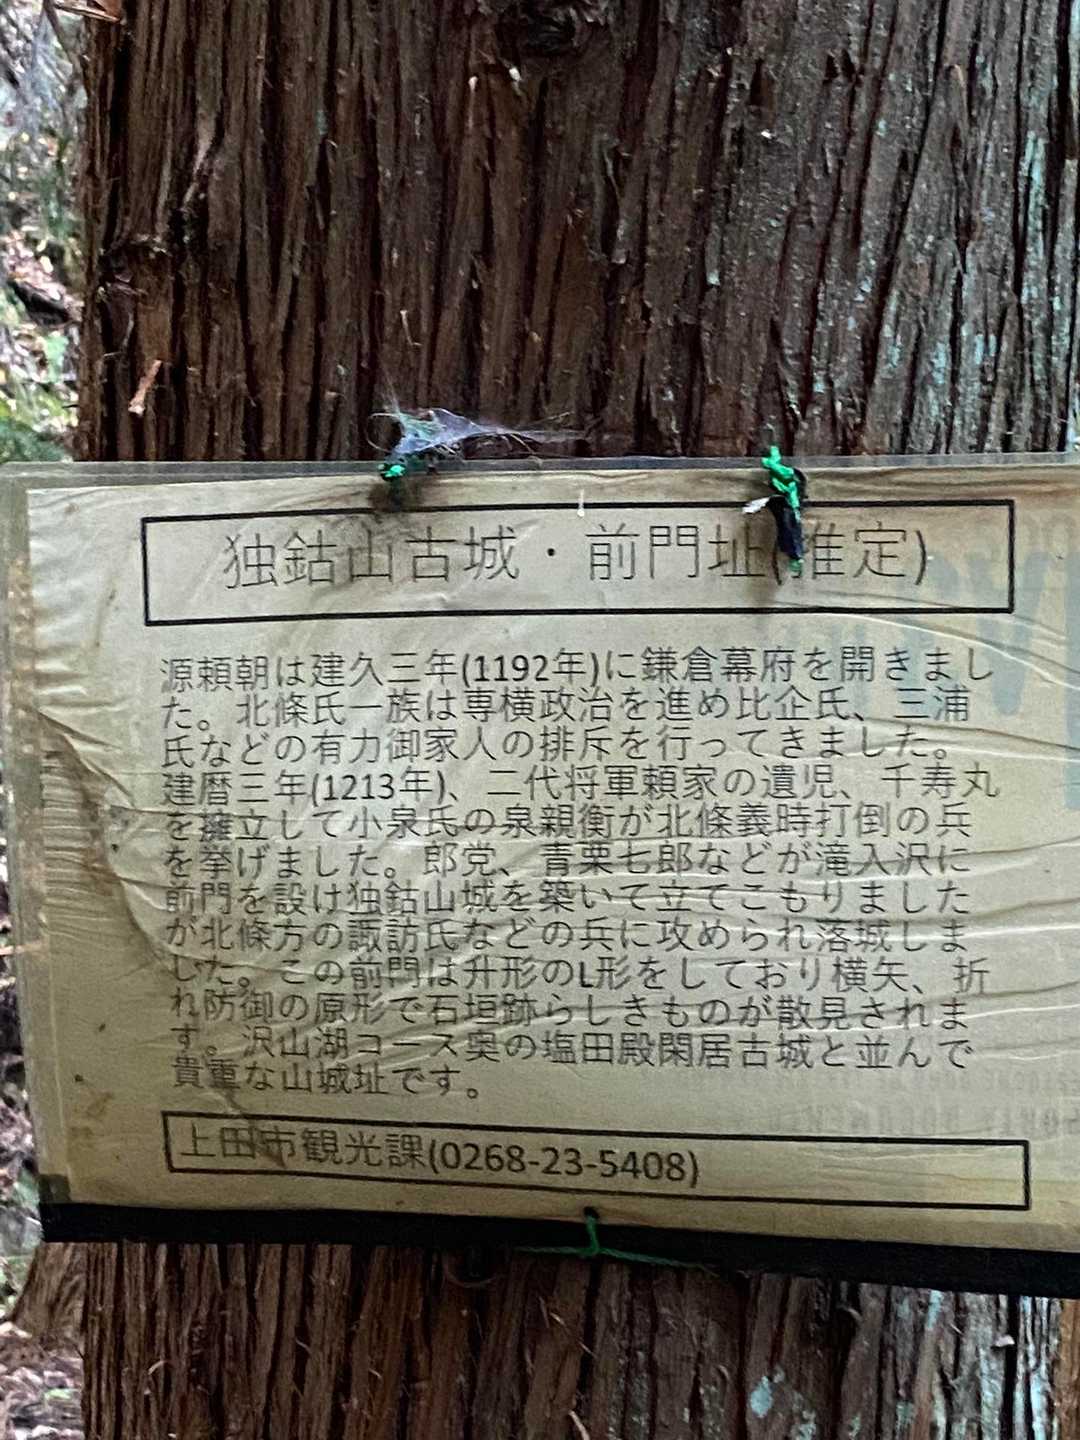 独鈷山古城・前門址(推定)
源頼朝は建久三年(1192年)に鎌倉幕府を開きまし
た。北條氏一族は専横政治を進め比企氏、三浦
氏などの有力御家人の排斥を行ってきました。
建暦三年(1213年)、二代将軍頼家の遺児、千寿丸
を擁立して小泉氏の泉親衡が北條義時打倒の兵
を挙げました。郎党、青栗七郎などが滝入沢に
前門を設け独鈷山城を築いて立てこもりました
が北條方の諏訪氏などの兵に攻められ落城しま
した。この前門は升形のL形をしており横矢、折
れ防御の原形で石垣跡らしきものが散見されま
す。沢山湖コース奥の塩田殿閑居古城と並んで
貴重な山城址です。
上田市観光課(0268-23-5408)